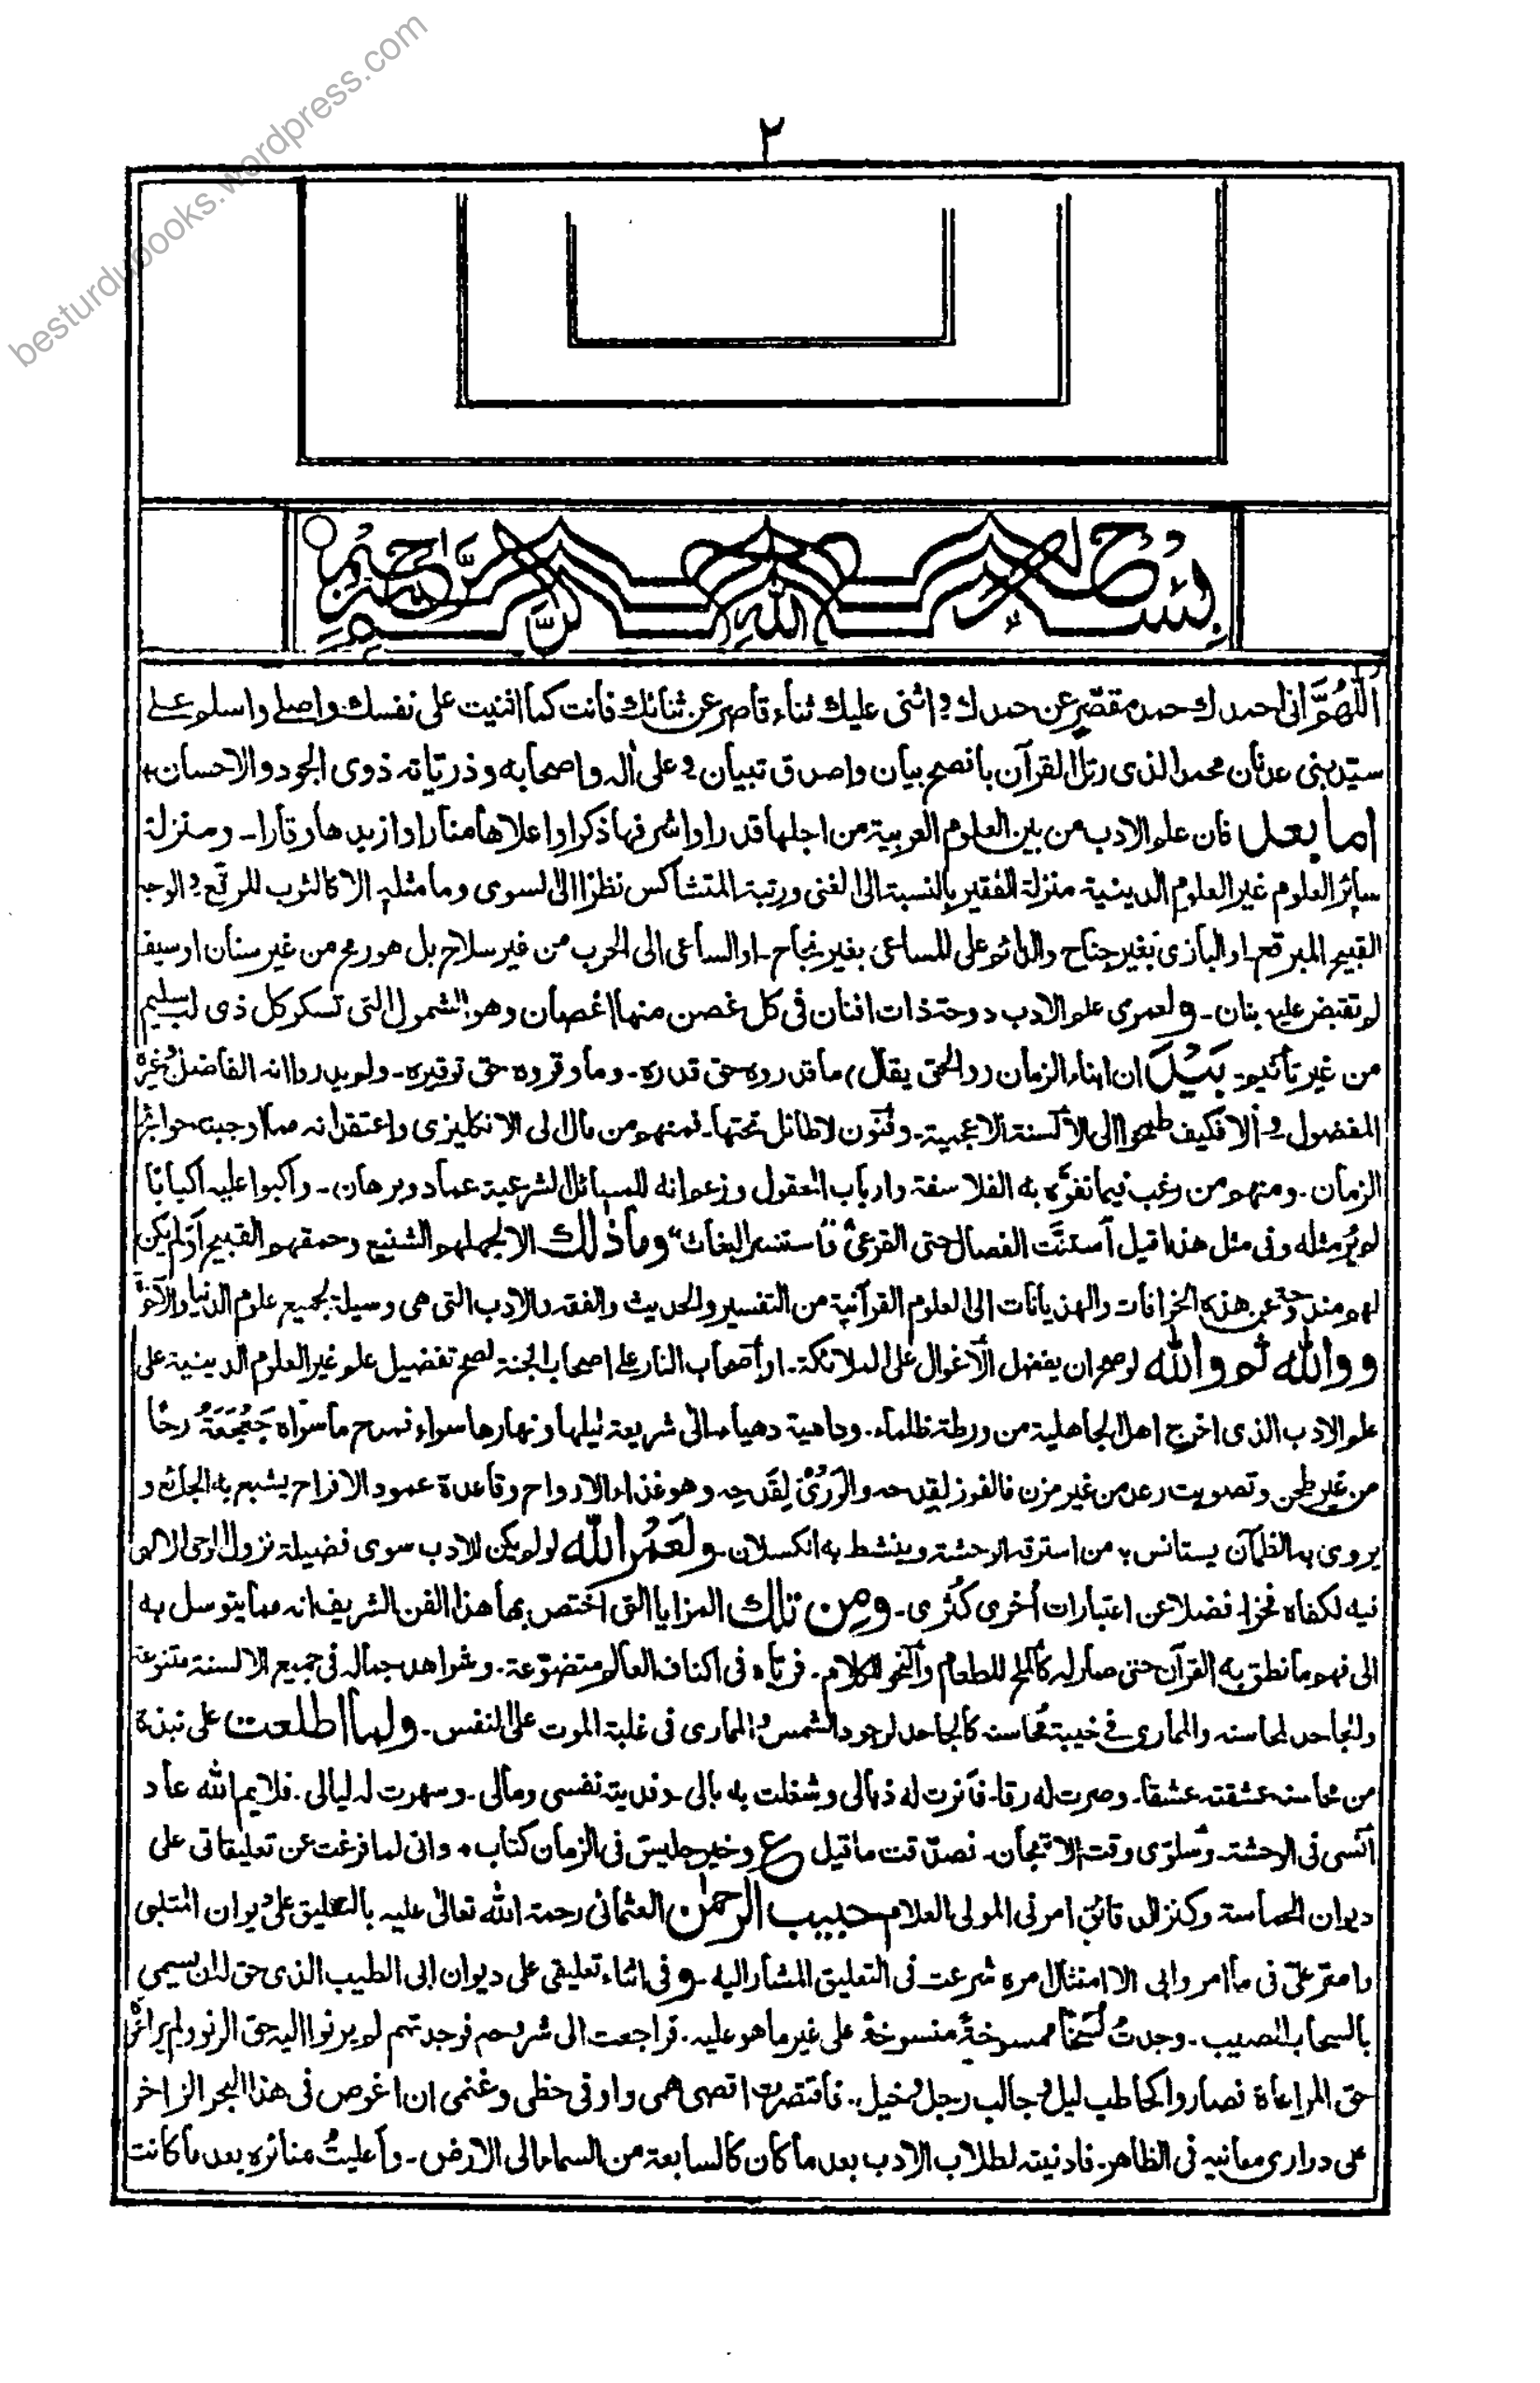 besturdubooks.wordpress.com
٢
بسم الله الرحمن الرحيم
اَللّٰهُمَّ انى احمدك حمد مقصّرٍ عن حمدك و اثنى عليك ثناء قاصر عن ثنائك فأنت كما اثنيت على نفسك واصلے واسلم علے
سيّد بنى عدنان محمد الذى رتل القرآن بأفصح بيان واصدق تبيان و على اٰله واصحابه وذرياته ذوى الجود والاحسان
اما بعد فان علم الادب من بين العلوم العربية من اجلها قدرا واشرفها ذكرا واعلاها منارا وازيدها وقارا۔ ومنزلة
سائر العلوم غير العلوم الدينية منزلة الفقير بالنسبة الى الغنى ورتبة المتشاكس نظرا الى السوى وما مثله الا كالثوب المرقع و الوجه
القبيح المبرقع۔ او البازى بغير جناح والمائو على للساعى بغير نجاح۔ او الساعى الى الحرب من غير سلاح بل هو رمح من غير سنان او سيف
لم تقبض عليه بنان۔ ولعمرى علم الادب دوحة ذات افنان فى كل غصن منها اغصان وهو الشمول التى تسكر كل ذى لب سليم
من غير تأثيم۔ بَيْدَ ان ابناء الزمان (والحق يقال) ما قدروه حق قدره۔ وما وقروه حق توقيره۔ ولم يدروا انه الفاضل وغيره
المفضول و۔ الا فكيف طمحوا الى الألسنة الاعجمية۔ وفنون لا طائل تحتها۔ فمنهم من مال الى الانكليزى واعتقد انه مما اوجبته حوائج
الزمان۔ ومنهم من رغب فيما تفوّه به الفلاسفة وارباب العقول وزعم انه للمسائل الشرعية عماد وبرهان۔ واكبوا عليه اكبابًا
لم يُر مثله وفى مثل هذا قيل استنّت الفصال حتى القرعىٰ فاستنسر البغاث وما ذٰلك الا لجهلهم الشنيع وحمقهم القبيح أولم يكن
لهم مندوحة عن هذه الخرافات والهذيانات الى العلوم القرآنية من التفسير والحديث والفقه والادب التى هى وسيلة لجميع علوم الدنيا والآخرة
ووالله ثم والله لو صح ان يفضل الاغوال على الملائكة۔ او اصحاب النار على اصحاب الجنة لصح تفضيل علم غير العلوم الدينية على
علم الادب الذى اخرج اهل الجاهلية من ورطة ظلماء۔ وداهية دهياء الى شريعة ليلها ونهارها سواء فمدح ما سوّاه جَعْجَعَةُ رحًا
من غير طحن وتصويت رعد من غير مزن فالفوز لقدحه والوَرْىُ لِقَدحِه وهو غذاء الارواح وقاعدة عمود الافراح يشبع به الجائع و
يروى به الظمآن يستانس به من استرقه الوحشة وينشط به الكسلان۔ ولَعَمْرُ الله لو لم يكن للادب سوى فضيلة نزول الوحى الالهى
فيه لكفاه فخرا۔ فضلا عن اعتبارات أخرى كُثرى۔ ومِن تلك المزايا التى اختص بها هذا الفن الشريف انه مما يتوسل به
الى فهم ما نطق به القرآن حتى صار له كالملح للطعام والنحو للكلام۔ فرياه فى اكناف العالم متضوّعة۔ وشواهد جماله فى جميع الالسنة متنوعة
والجاحد لمحاسنه والممارى فى خيبة محاسنه كالجاحد لوجود الشمس والممارى فى غلبة الموت على النفس۔ ولما اطلعت على نبذة
من محاسنه عشقته عشقا۔ وصرت له رقا۔ فآثرت له ذمالى وشغلت به بالى۔ وفديته نفسى ومالى۔ وسهرت له ليالى۔ فلايم الله عاد
أنسى فى الوحشة۔ وسلوتى وقت الاشجان۔ فصدّقت ما قيل ع وخير جليس فى الزمان كتاب۔ وانى لما فرغت عن تعليقاتى على
ديوان الحماسة وكنز الدقائق امرنى المولى العلام حبيب الرحمٰن العثمانى رحمة الله تعالىٰ عليه بالتعليق على ديوان المتنبى
واصرّ علىّ فى ما امر وابى الا امتثال امره شرعت فى التعليق المشار اليه۔ و فى اثناء تعليقى على ديوان ابى الطيب الذى حق لان يسمى
بالسحاب الصيب۔ وجدتُ نُسخًا ممسوخةً منسوخةً على غير ما هو عليه۔ فراجعت الى شروحه فوجدتهم لم يرنوا اليه حق الرنو ولم يراعوا
حق المراعاة فصاروا كحاطب ليل او جالب رجل وخيل۔ فاقتصرت اقصى همى واوفى حظى وغنمى ان اغوص فى هذا البحر الزاخر
على درارى معانيه فى الظاهر۔ فادنيته لطلاب الادب بعد ما كان كالسابعة من السماء الى الارض۔ وأعليتُ منائره بعد ما كانت